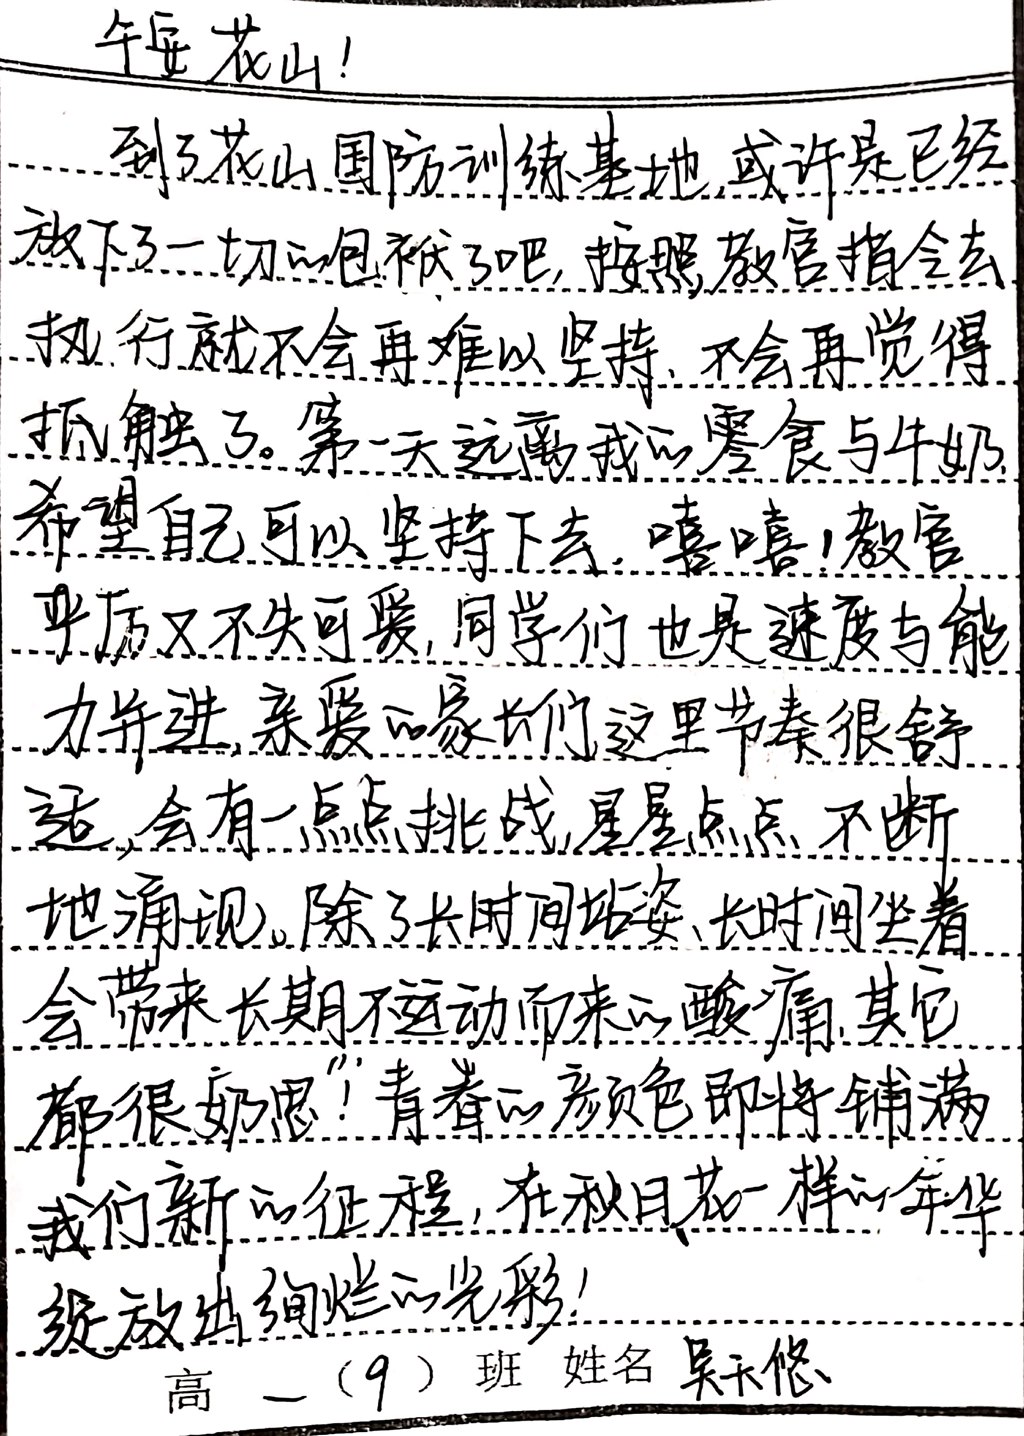 午安花山！
到了花山国防训练基地，或许是已经
放下了一切的包袱了吧，按照教官指令去
执行就不会再难以坚持、不会再觉得
抓触了。第一天远离我的零食与牛奶，
希望自己可以坚持下去，嘻嘻！教官
严厉又不失可爱，同学们也是速度与能
力并进，亲爱的家长们，这里节奏很舒
适，会有一点点挑战，星星点点，不断
地涌现。除了长时间站姿、长时间坐着
会带来长期不运动而来的酸痛，其它
都很奶思"！青春的颜色即将铺满
我们新的征程，在秋日花一样的年华
绽放出绚烂的光彩！
高一（9）班 姓名 吴天悠